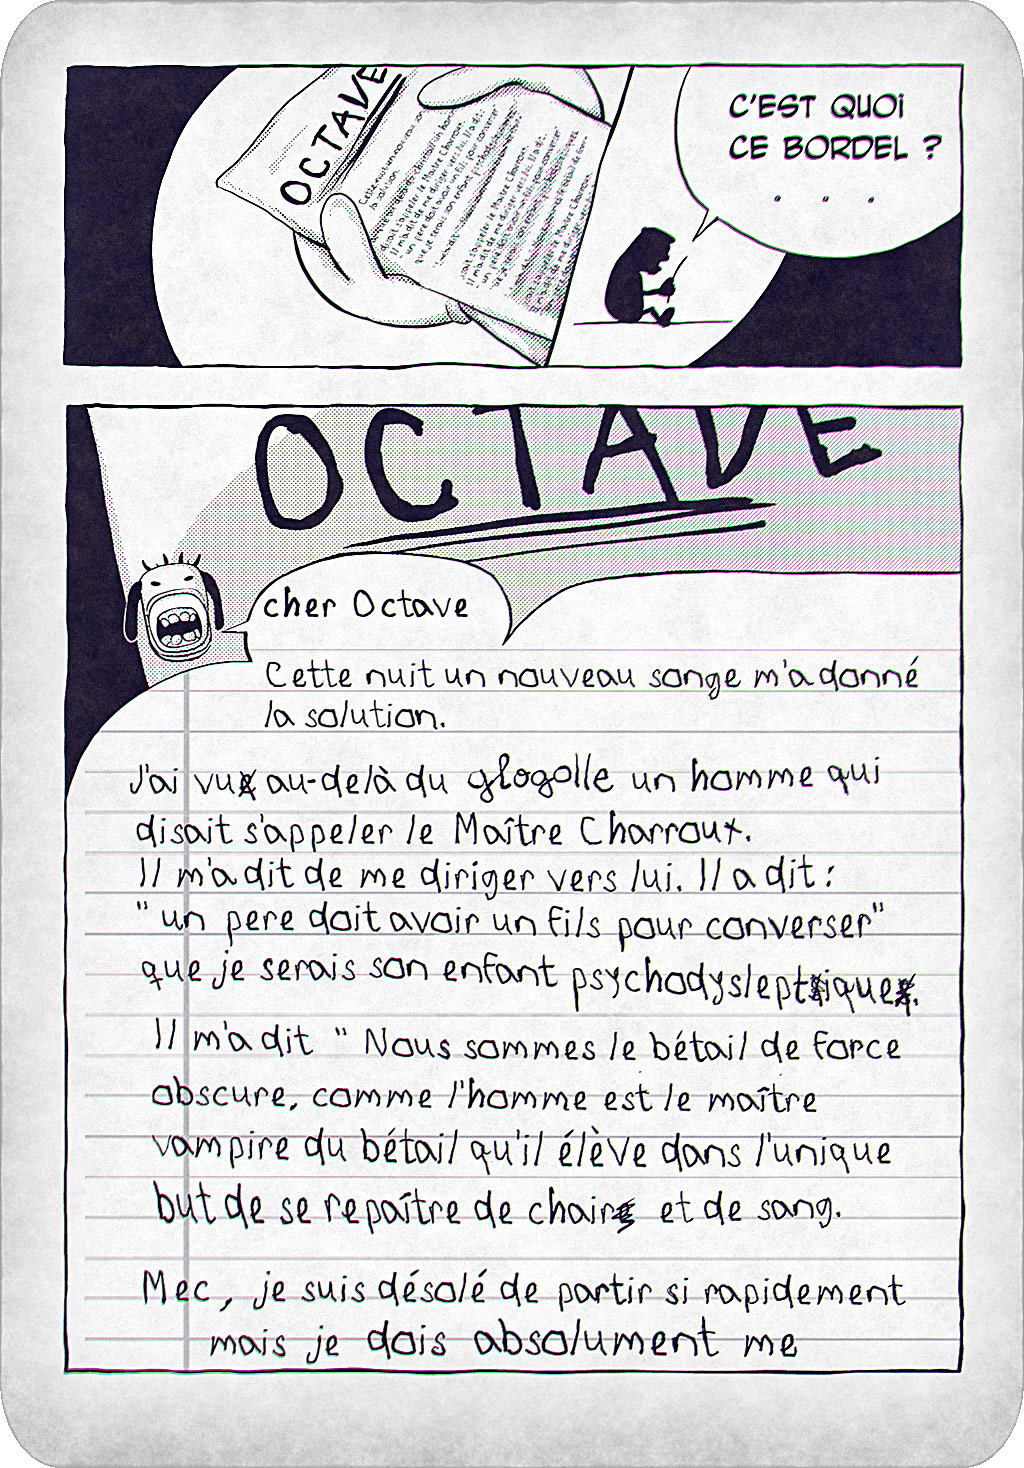 OCTAVE
C'EST QUOI
CE BORDEL ?
. . .
OCTAVE
cher Octave
Cette nuit un nouveau songe m'a donné
la solution.
J'ai vu au-delà du glogolle un homme qui
disait s'appeler le Maître Charroux.
Il m'a dit de me diriger vers lui. Il a dit :
"un pere doit avoir un fils pour converser"
que je serais son enfant psychodysleptique.
Il m'a dit " Nous sommes le bétail de force
obscure, comme l'homme est le maître
vampire du bétail qu'il élève dans l'unique
but de se repaître de chair et de sang.
Mec, je suis désolé de partir si rapidement
mais je dois absolument me